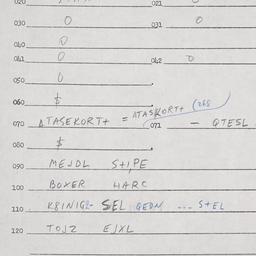 020 021
030 0 031 0
040 0
041 0 042 0
050 0
060 $
070 ATASEKORT+ = ATASKORT+ (268
071 — QTESL
080 $
090 MEJDL S+I,PE
100 BOXER HARC
110 SEL QEDM --- S+EL
120 TOJZ EJXL